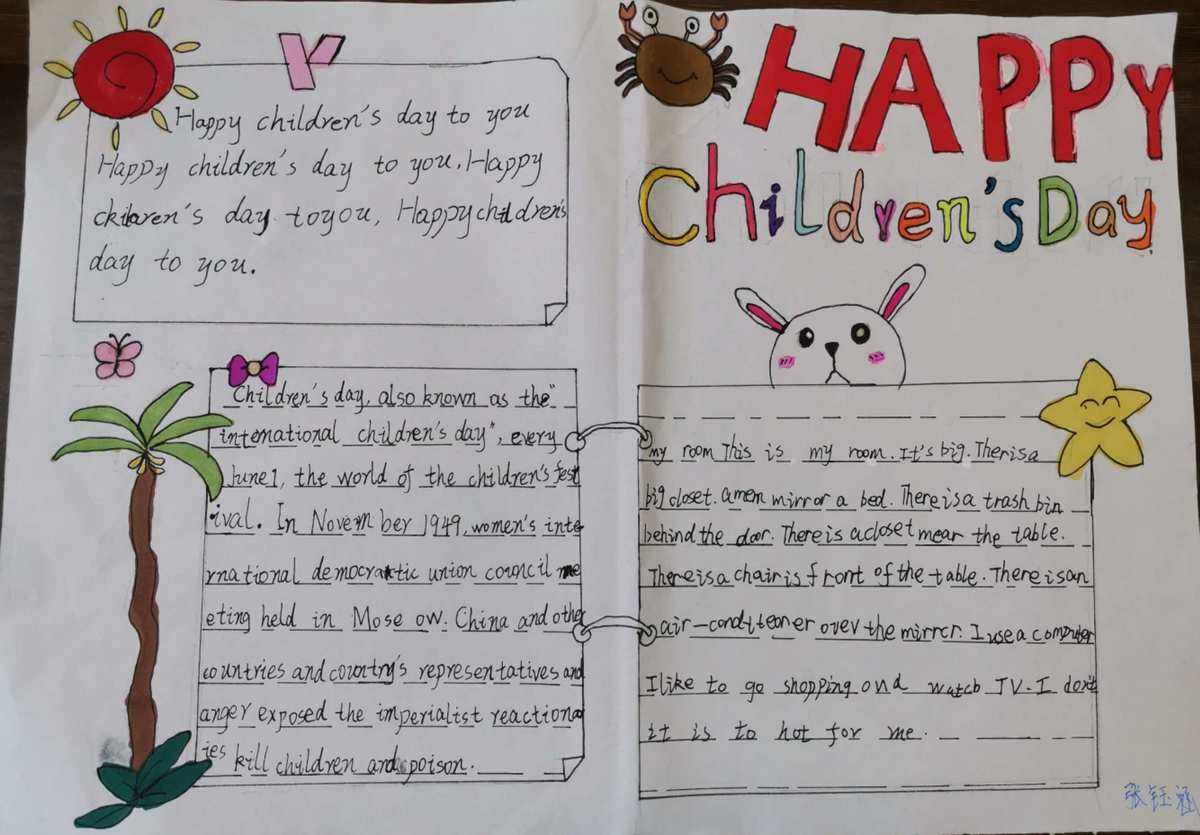 HAPPY
Children's Day
Happy children's day to you
Happy children's day to you. Happy
children's day to you, Happy children's
day to you.
Children's day, also known as the"
international children's day", every
June 1, the world of the children's fest
ival. In November 1949, women's inte
rnational democractic union council me
eting held in Mose ow. China and other
countries and country's representatives and
anger exposed the imperialist reactiona
ies kill children and poison.
my room This is my room. It's big. There is a
big closet. a mirror a bed. There is a trash bin
behind the door. There is a closet mear the table.
There is a chair is front of the table. There is an
air-conditeoner over the mirror. I use a computer
I like to go shopping and watch TV. I don't
it is to hot for me.
张钰涵